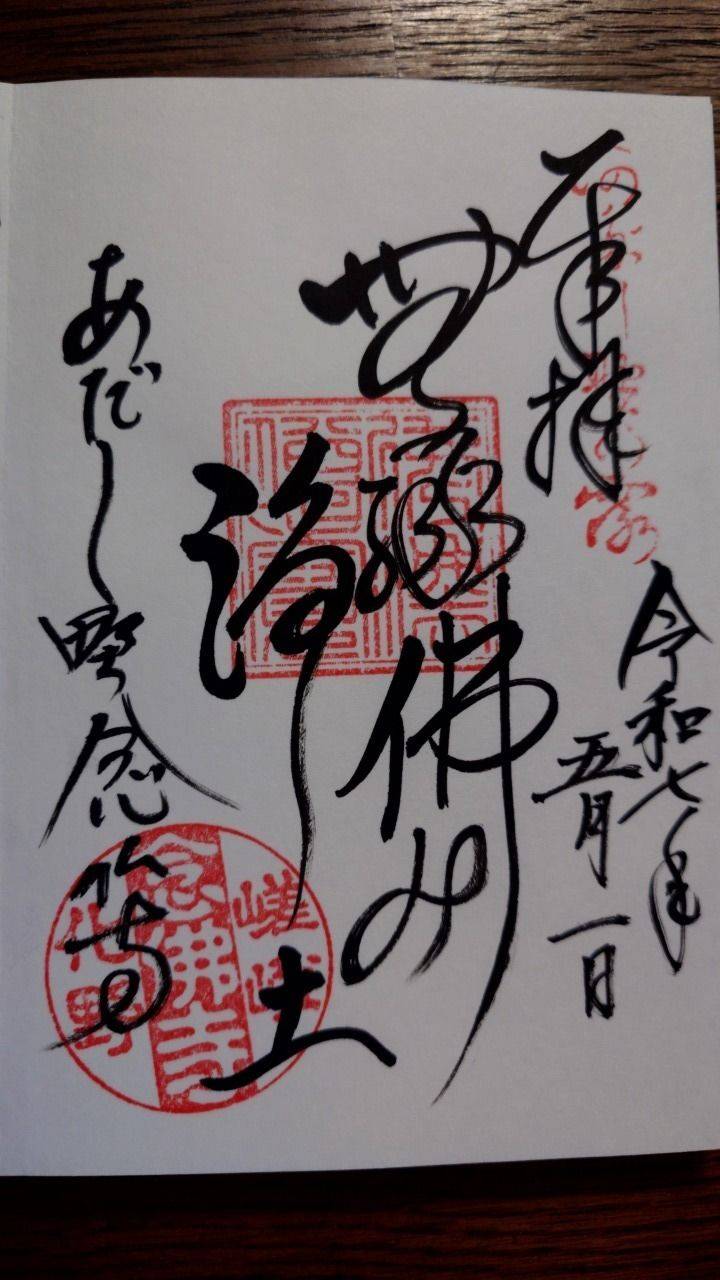 奉拝
令和七年
五月一日
無縁佛の
浄土
あだし野念仏寺
嵯峨
念佛寺
化野